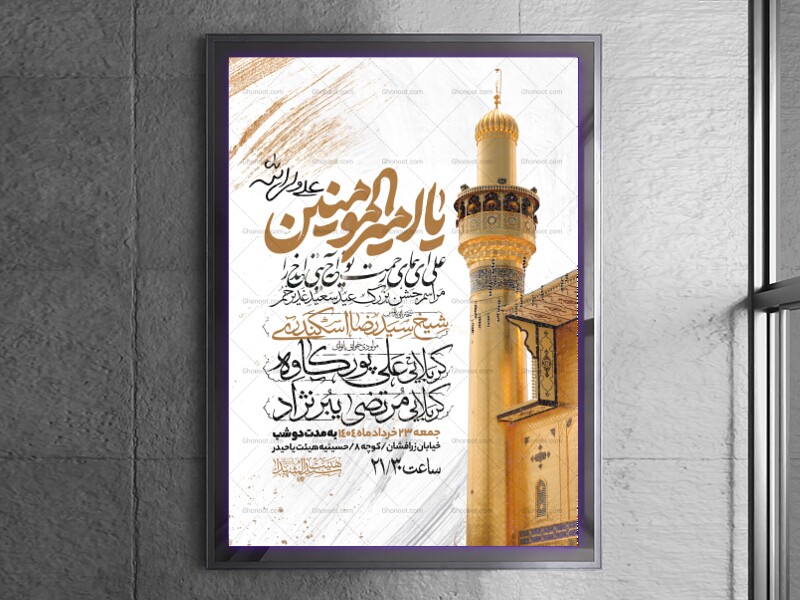 علی ولی الله
یا امیرالمومنین
علی ای همای رحمت تو چه آیتی خدا را
مراسم جشن بزرگ عید سعید غدیر خم
سخنرانی
شیخ سیدرضا اسکندری
مولودی خوانی با نوای
کربلایی علی پورکاوه
کربلایی مرتضی ببرنژاد
جمعه ۲۳ خرداد ماه ۱۴۰۴ به مدت دو شب
خیابان زرافشان / کوچه ۸ / حسینیه هیئت یاحیدر
ساعت ۲۱/۳۰
Ghonoot.com